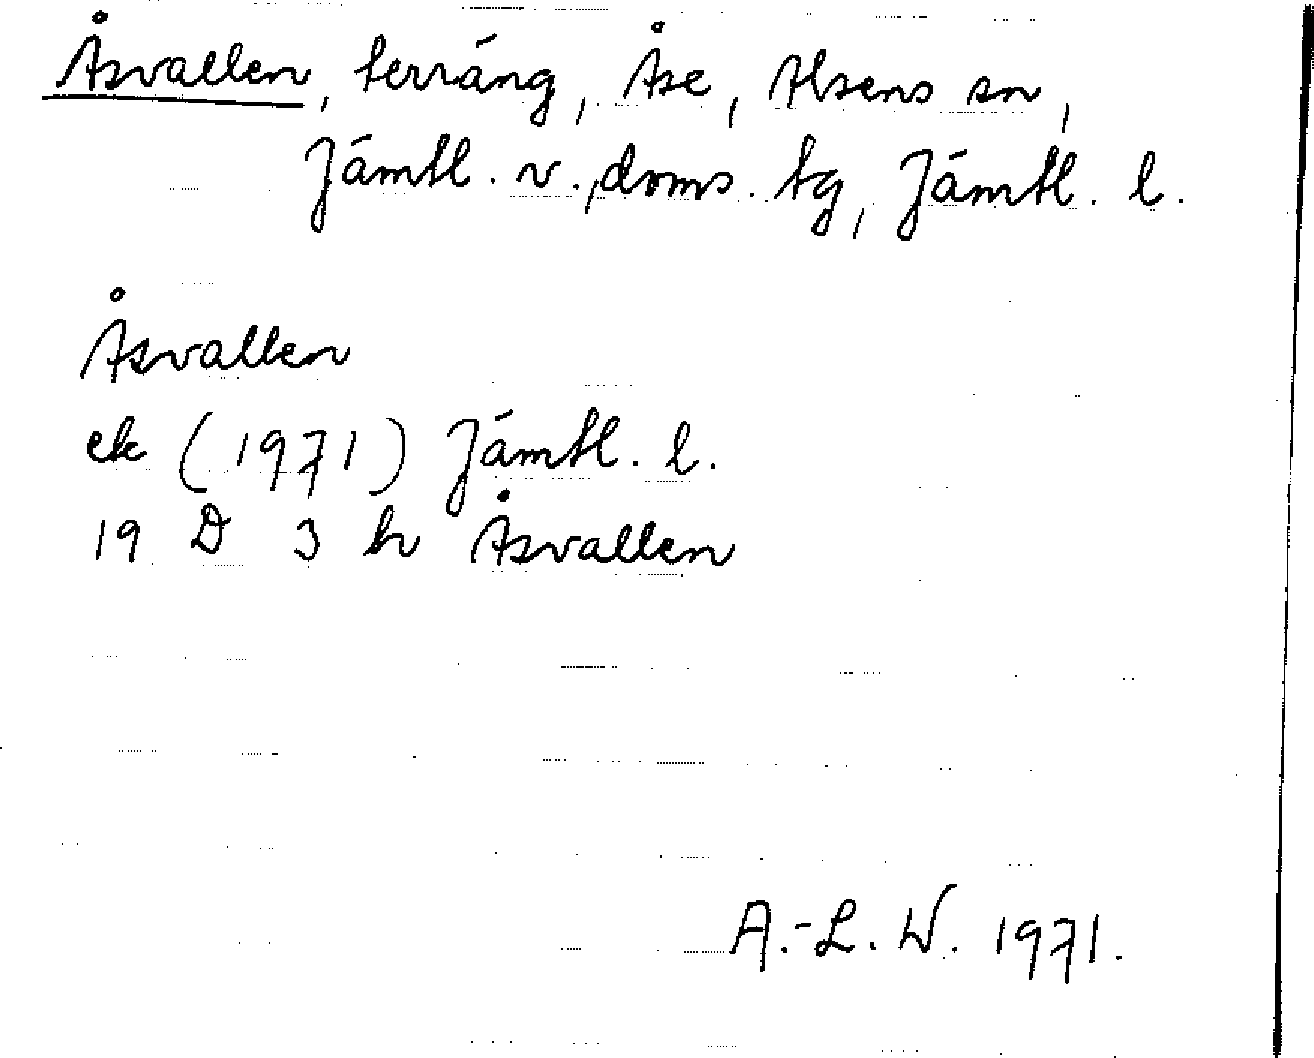 Åsvallen, terräng, Åse, Alsens sn,
Jämtl. v., doms. tg, Jämtl. l.
Åsvallen
ek (1971) Jämtl. l.
19 D 3 h Åsvallen
A.-L. W. 1971.